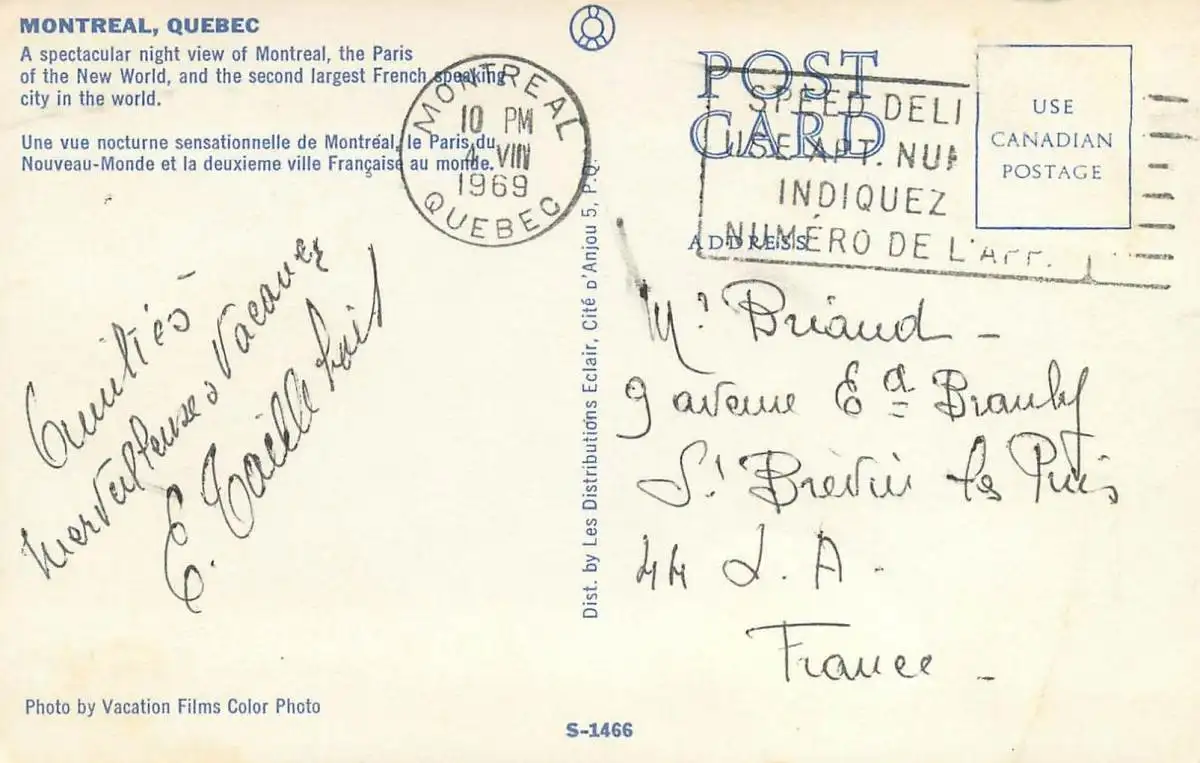 MONTREAL, QUEBEC
A spectacular night view of Montreal, the Paris
of the New World, and the second largest French speaking
city in the world.
Une vue nocturne sensationnelle de Montréal, le Paris du
Nouveau-Monde et la deuxieme ville Française au monde.
MONTREAL
10 PM
VIII
1969
QUEBEC
POST
CARD
SPEED DELI
USE APT. NUM
INDIQUEZ
NUMÉRO DE L'APP.
USE
CANADIAN
POSTAGE
ADDRESS
Amitiés
Merveilleuses Vacances
E.
Dist. by Les Distributions Eclair, Cité d'Anjou 5, P.Q.
Mr Briand -
9 avenue Ed Branly
St Brévin les Pins
44 L. A.
France -
Photo by Vacation Films Color Photo
S-1466